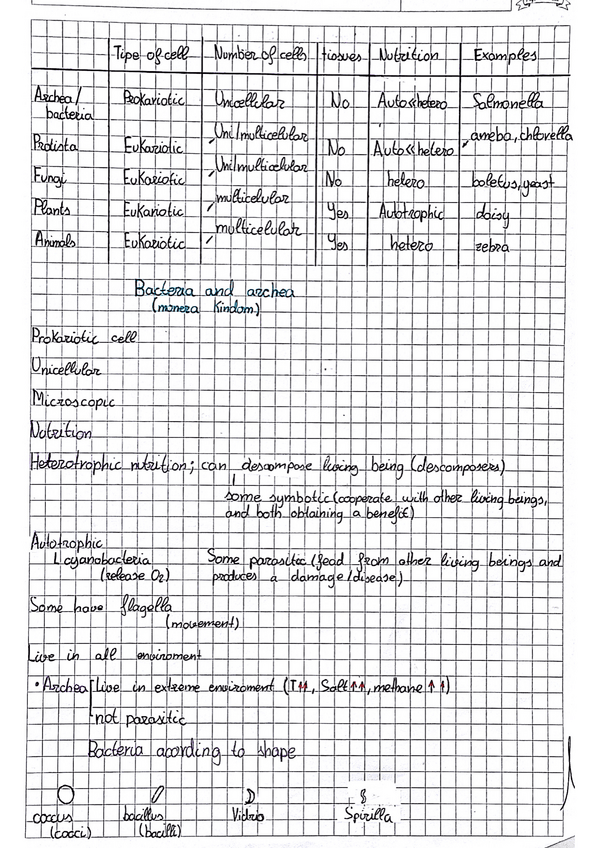 Tipe of cell Number of cells tissues Nutrition Examples
Archea/ Prokariotic Unicellular No Auto<<hetero Salmonella
bacteria
Protista Eukariotic Uni/multicelular No Auto<<hetero ameba, chlorella
Fungi Eukariotic Uni/multicelular No hetero boletus, yeast
Plants Eukariotic multicelular Yes Autotrophic daisy
Animals Eukariotic multicelular Yes hetero zebra
Bacteria and archea
(monera Kindom)
Prokariotic cell
Unicellular
Microscopic
Nutrition
Heterotrophic nutrition; can descompose living being (descomposers)
some symbotic (cooperate with other living beings,
and both obtaining a benefit)
Autotrophic
cyanobacteria Some parasitic (feed from other living beings and
(release O2) produces a damage/disease)
Some have flagella
(movement)
Live in all enviroment
• Archea Live in extreme enviroment (T↑↑, Salt↑↑, methane ↑↑)
not parasitic
Bacteria acording to shape
coccus bacillus Vidrio Spirilla
(cocci) (bacilli)